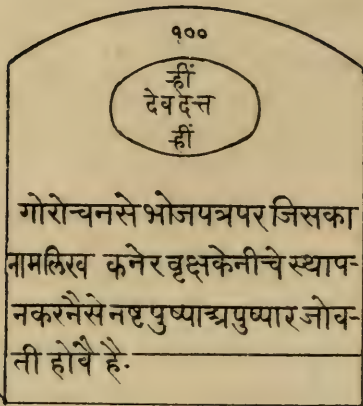 १००
ह्रीं
देवदत्त
ह्रीं
गोरोचनसे भोजपत्रपर जिसका
नामलिख कनेर वृक्षकेनीचे स्थाप-
नकरनैसे नष्ट पुष्पाअपुष्पा रजोव-
ती होवै है.